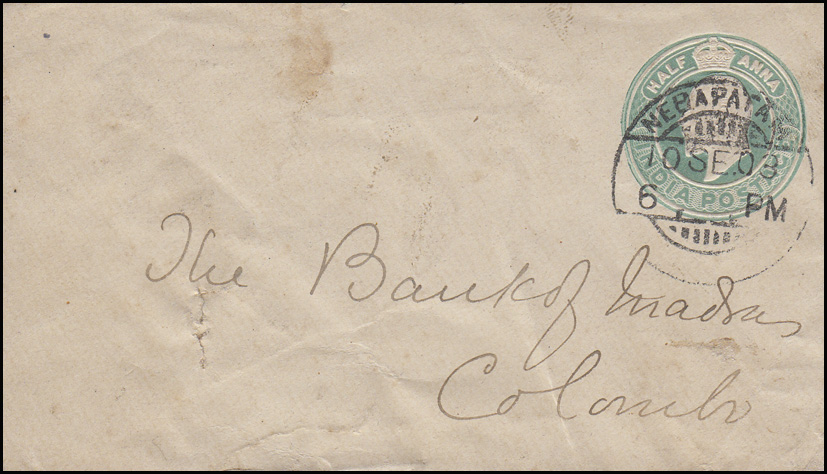 HALF ANNA
INDIA POSTAGE
NEGAPATAM
10 SE.03
6 PM
The Bank of Madras
Colombo